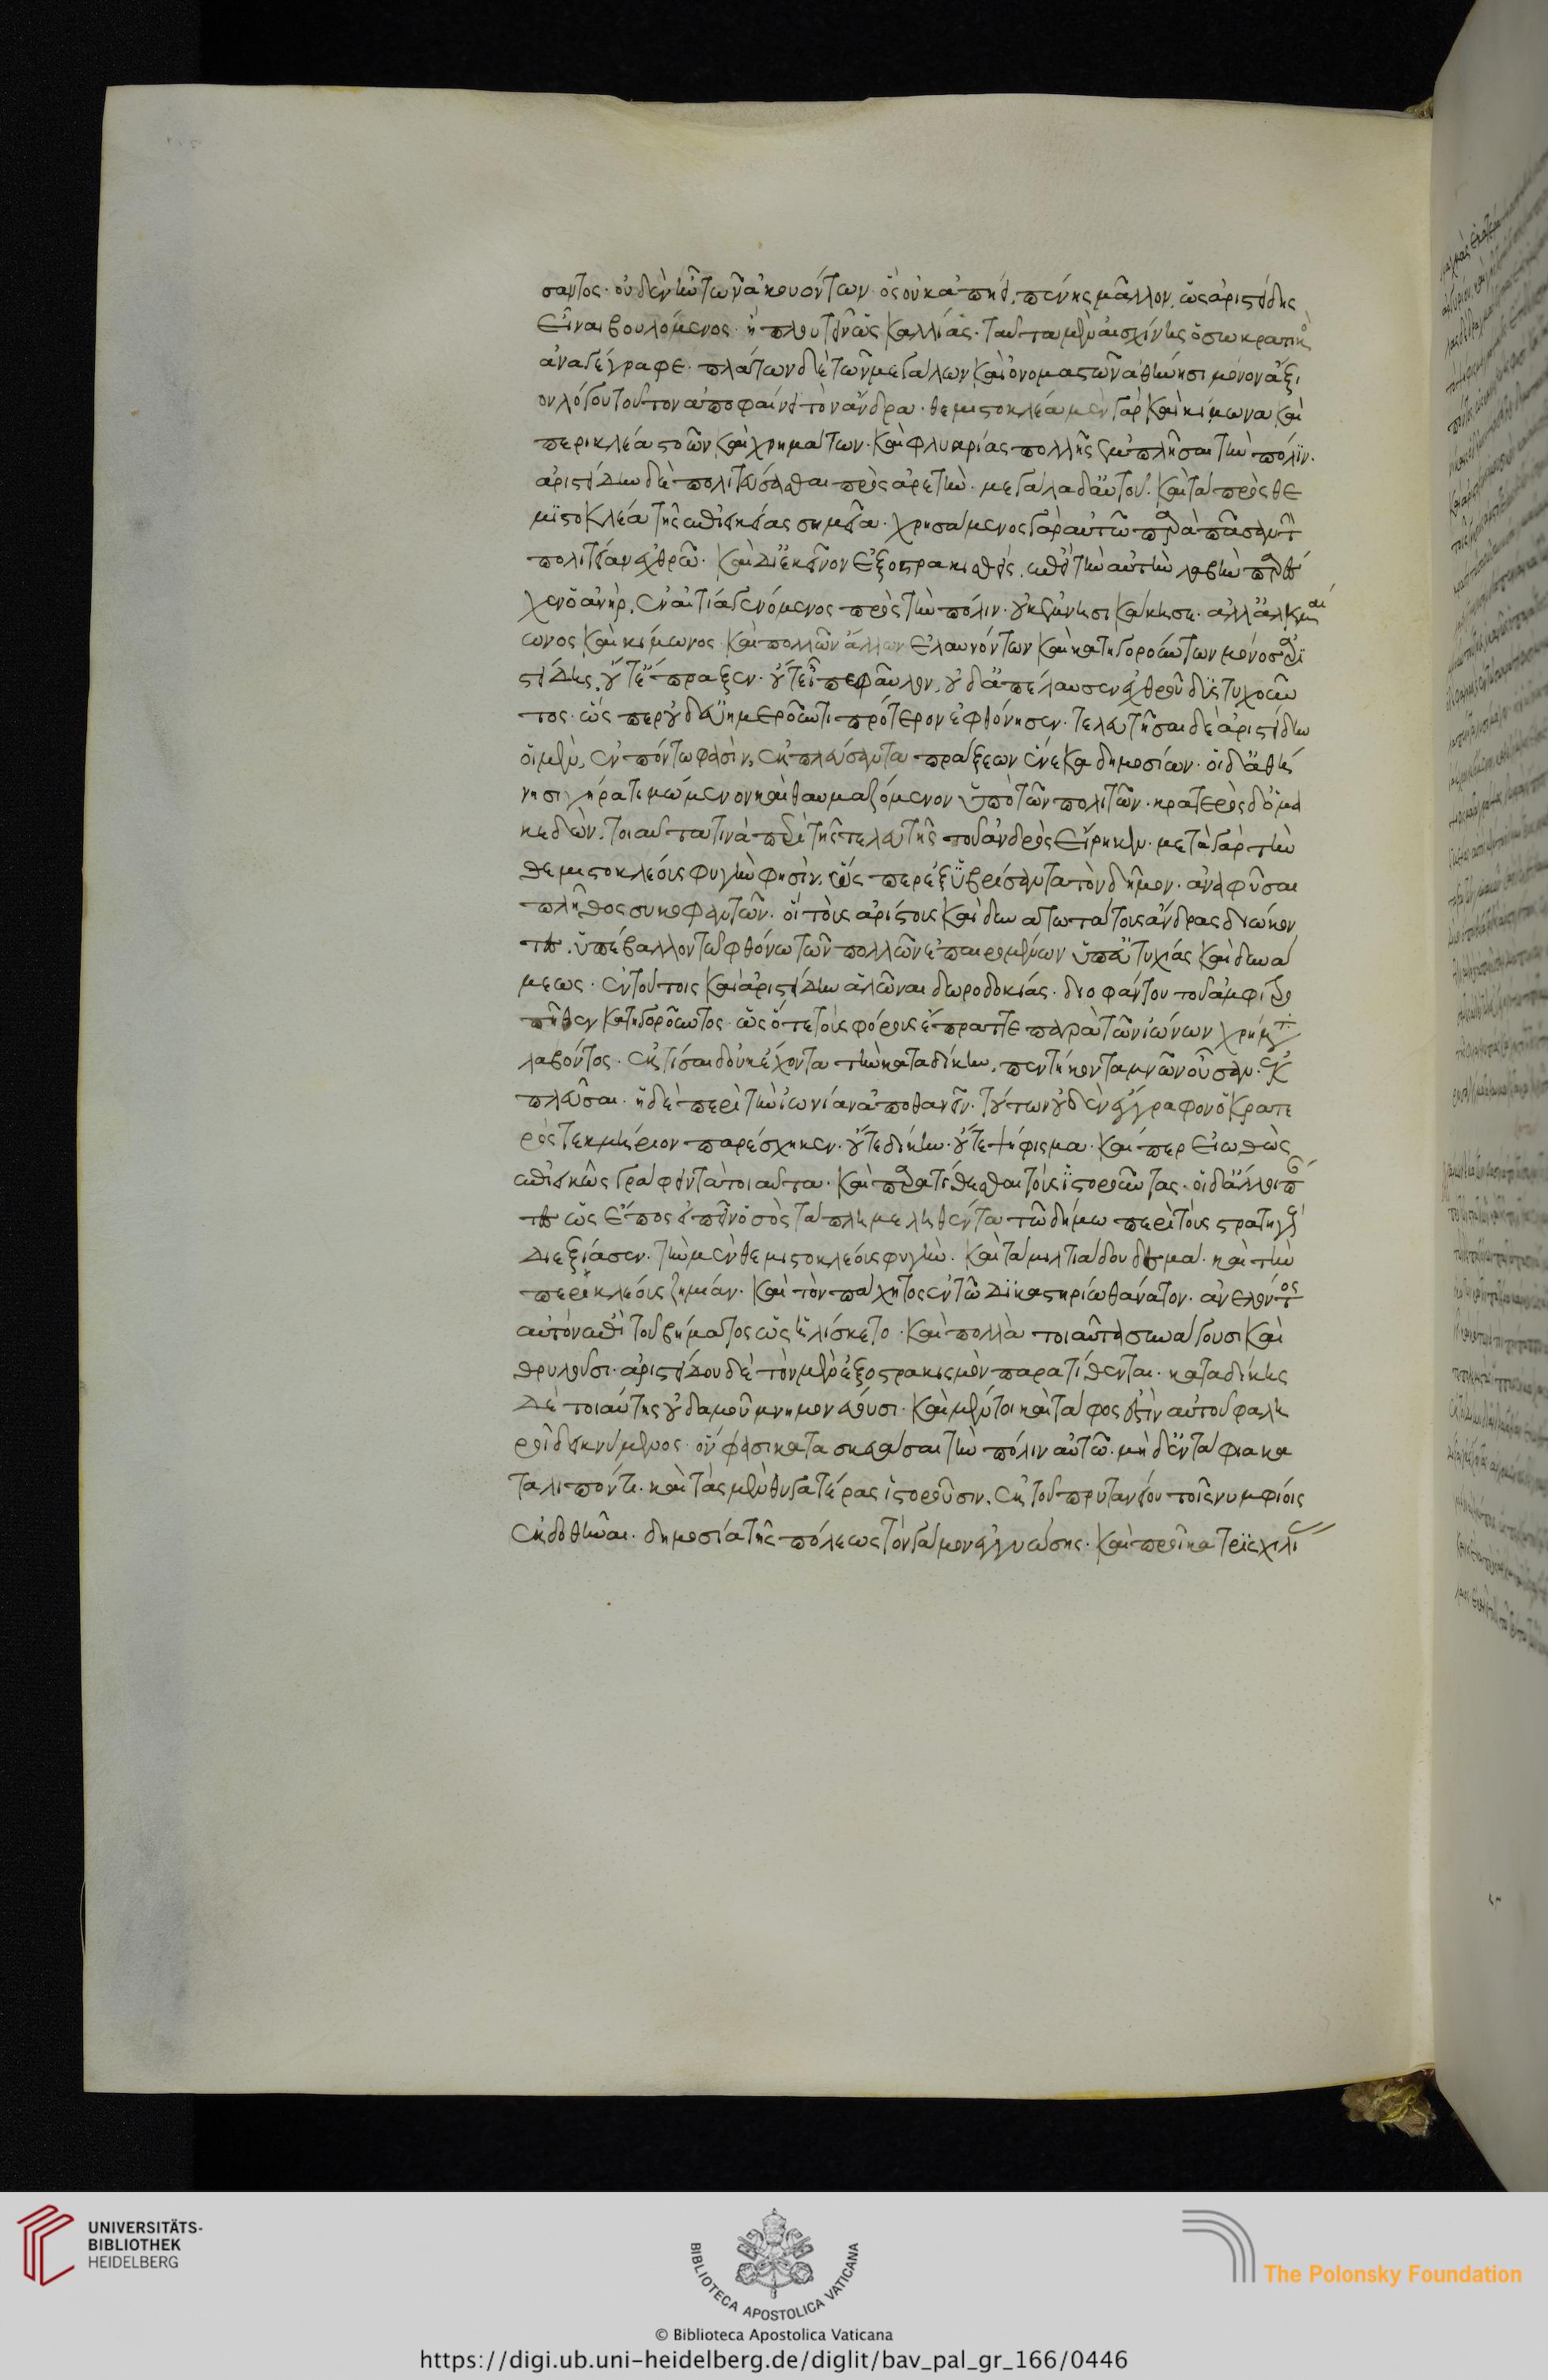 σαντος· οὐδεὶς ἦν τῶν ἀκουόντων ὃς οὐκ ἀπῄει, πένης μᾶλλον, ὡς ἀριστείδης
εἶναι βουλόμενος· ἢ πλουτεῖν ὡς καλλίας· ταῦτα μὲν αἰσχίνης ὁ σωκρατικὸς
ἀναγέγραφε· πλάτων δὲ τῶν μεγάλων καὶ ὀνομαστῶν ἀθήνησι μόνον ἄξι
ον λόγου τοῦτον ἀποφαίνει τὸν ἄνδρα· θεμιστοκλέα μὲν γὰρ καὶ κίμωνα καὶ
περικλέα στοῶν καὶ χρημάτων· καὶ φλυαρίας πολλῆς ἐμπλῆσαι τὴν πόλιν·
ἀριστείδην δὲ πολιτεύσασθαι πρὸς ἀρετήν· μεγάλα δ' αὐτοῦ· καὶ τὰ πρὸς θε
μιστοκλέα τῆς ἐπιεικείας σημεῖα· χρησάμενος γὰρ αὐτῷ παρὰ πᾶσαν τὴν
πολιτείαν ἐχθρῷ· καὶ δι' ἐκεῖνον ἐξοστρακισθεὶς, ἐπεὶ τὴν αὐτὴν λαβὴν παρέ
σχεν ὁ ἀνὴρ, ἐν αἰτίᾳ γενόμενος πρὸς τὴν πόλιν· οὐκ ἐμνησικάκησεν· ἀλλ' ἀλκμαί
ωνος καὶ κίμωνος καὶ πολλῶν ἄλλων ἐλαυνόντων καὶ κατηγορούντων μόνος ἀρι
στείδης, οὔτ' ἔπραξεν· οὔτ' εἶπε φαῦλον, οὐδ' ἀπέλαυσεν ἐχθροῦ δυστυχοῦν
τος· ὥσπερ οὐδ' εὐημεροῦντι πρότερον ἐφθόνησεν· τελευτῆσαι δὲ ἀριστείδην
οἱ μὲν, ἐν πόντῳ φασὶν, ἐκπλεύσαντα πράξεων ἕνεκα δημοσίων· οἱ δ' ἀθή
νησι γήρᾳ τιμώμενον καὶ θαυμαζόμενον ὑπὸ τῶν πολιτῶν· κρατερὸς δ' ὁ μα
κεδὼν, τοιαῦτά τινα περὶ τῆς τελευτῆς τοῦ ἀνδρὸς εἴρηκεν· μετὰ γὰρ τὴν
θεμιστοκλέους φυγὴν φησὶν, ὥσπερ ἐξυβρίσαντα τὸν δῆμον· ἀναφῦσαι
πλῆθος συκοφαντῶν· οἳ τοὺς ἀρίστους καὶ δυνατωτάτους ἄνδρας διώκον
τες, ὑπέβαλλον τῷ φθόνῳ τῶν πολλῶν ἐπαιρομένων ὑπ' εὐτυχίας καὶ δυνά
μεως· ἐν τούτοις καὶ ἀριστείδην ἁλῶναι δωροδοκίας· διοφάντου τοῦ ἀμφιτρο
πῆθεν κατηγοροῦντος· ὡς ὅτε τοὺς φόρους ἔπραττε παρὰ τῶν ἰώνων χρήματα
λαβόντος· ἐκτίσαι δ' οὐκ ἔχοντα τὴν καταδίκην, πεντήκοντα μνῶν οὖσαν· ἐκ
πλεῦσαι· ἠδὲ περὶ τὴν ἰωνίαν ἀποθανεῖν· τούτων οὐδὲν ἔγγραφον ὁ κρατε
ρὸς τεκμήριον παρέσχηκεν· οὔτε δίκην· οὔτε ψήφισμα· καίπερ εἰωθὼς
ἐπιεικῶς γράφειν τὰ τοιαῦτα· καὶ παρατίθεσθαι τοὺς ἱστοροῦντας· οἱ δ' ἄλλοι πάν
τες ὡς ἔπος εἰπεῖν ὅσοι τὰ πλημμεληθέντα τῷ δήμῳ περὶ τοὺς στρατηγοὺς
διεξίασιν· τὴν μὲν θεμιστοκλέους φυγήν· καὶ τὰ μιλτιάδου δεσμά· καὶ τὴν
περικλέους ζημίαν· καὶ τὸν πάχητος ἐν τῷ δικαστηρίῳ θάνατον· ἀνελόντος
αὑτὸν ἐπὶ τοῦ βήματος ὡς ἡλίσκετο· καὶ πολλὰ τοιαῦτα συνάγουσι καὶ
θρυλοῦσι· ἀριστείδου δὲ τὸν μὲν ἐξοστρακισμὸν παρατίθενται· καταδίκης
δὲ τοιαύτης οὐδαμοῦ μνημονεύουσι· καὶ μέντοι καὶ τάφος ἐστὶν αὐτοῦ φαλη
ροῖ δεικνύμενος· ὅν φασι κατασκευάσαι τὴν πόλιν αὐτῷ· μηδ' ἐντάφια κα
ταλιπόντι· καὶ τὰς μὲν θυγατέρας ἱστοροῦσιν, ἐκ τοῦ πρυτανείου τοῖς νυμφίοις
ἐκδοθῆναι· δημοσίᾳ τῆς πόλεως τὸν γάμον ἐγγυώσης· καὶ προῖκα τρισχιλί
UNIVERSITÄTS-
BIBLIOTHEK
HEIDELBERG
BIBLIOTECA APOSTOLICA VATICANA
The Polonsky Foundation
© Biblioteca Apostolica Vaticana
https://digi.ub.uni-heidelberg.de/diglit/bav_pal_gr_166/0446